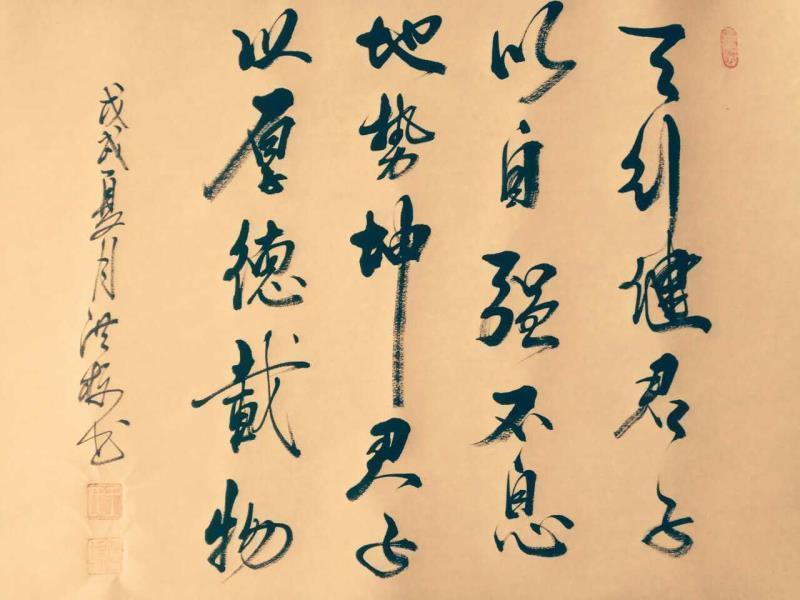 天行健君子
以自强不息
地势坤君子
以厚德载物
戊戌夏月洪栋书